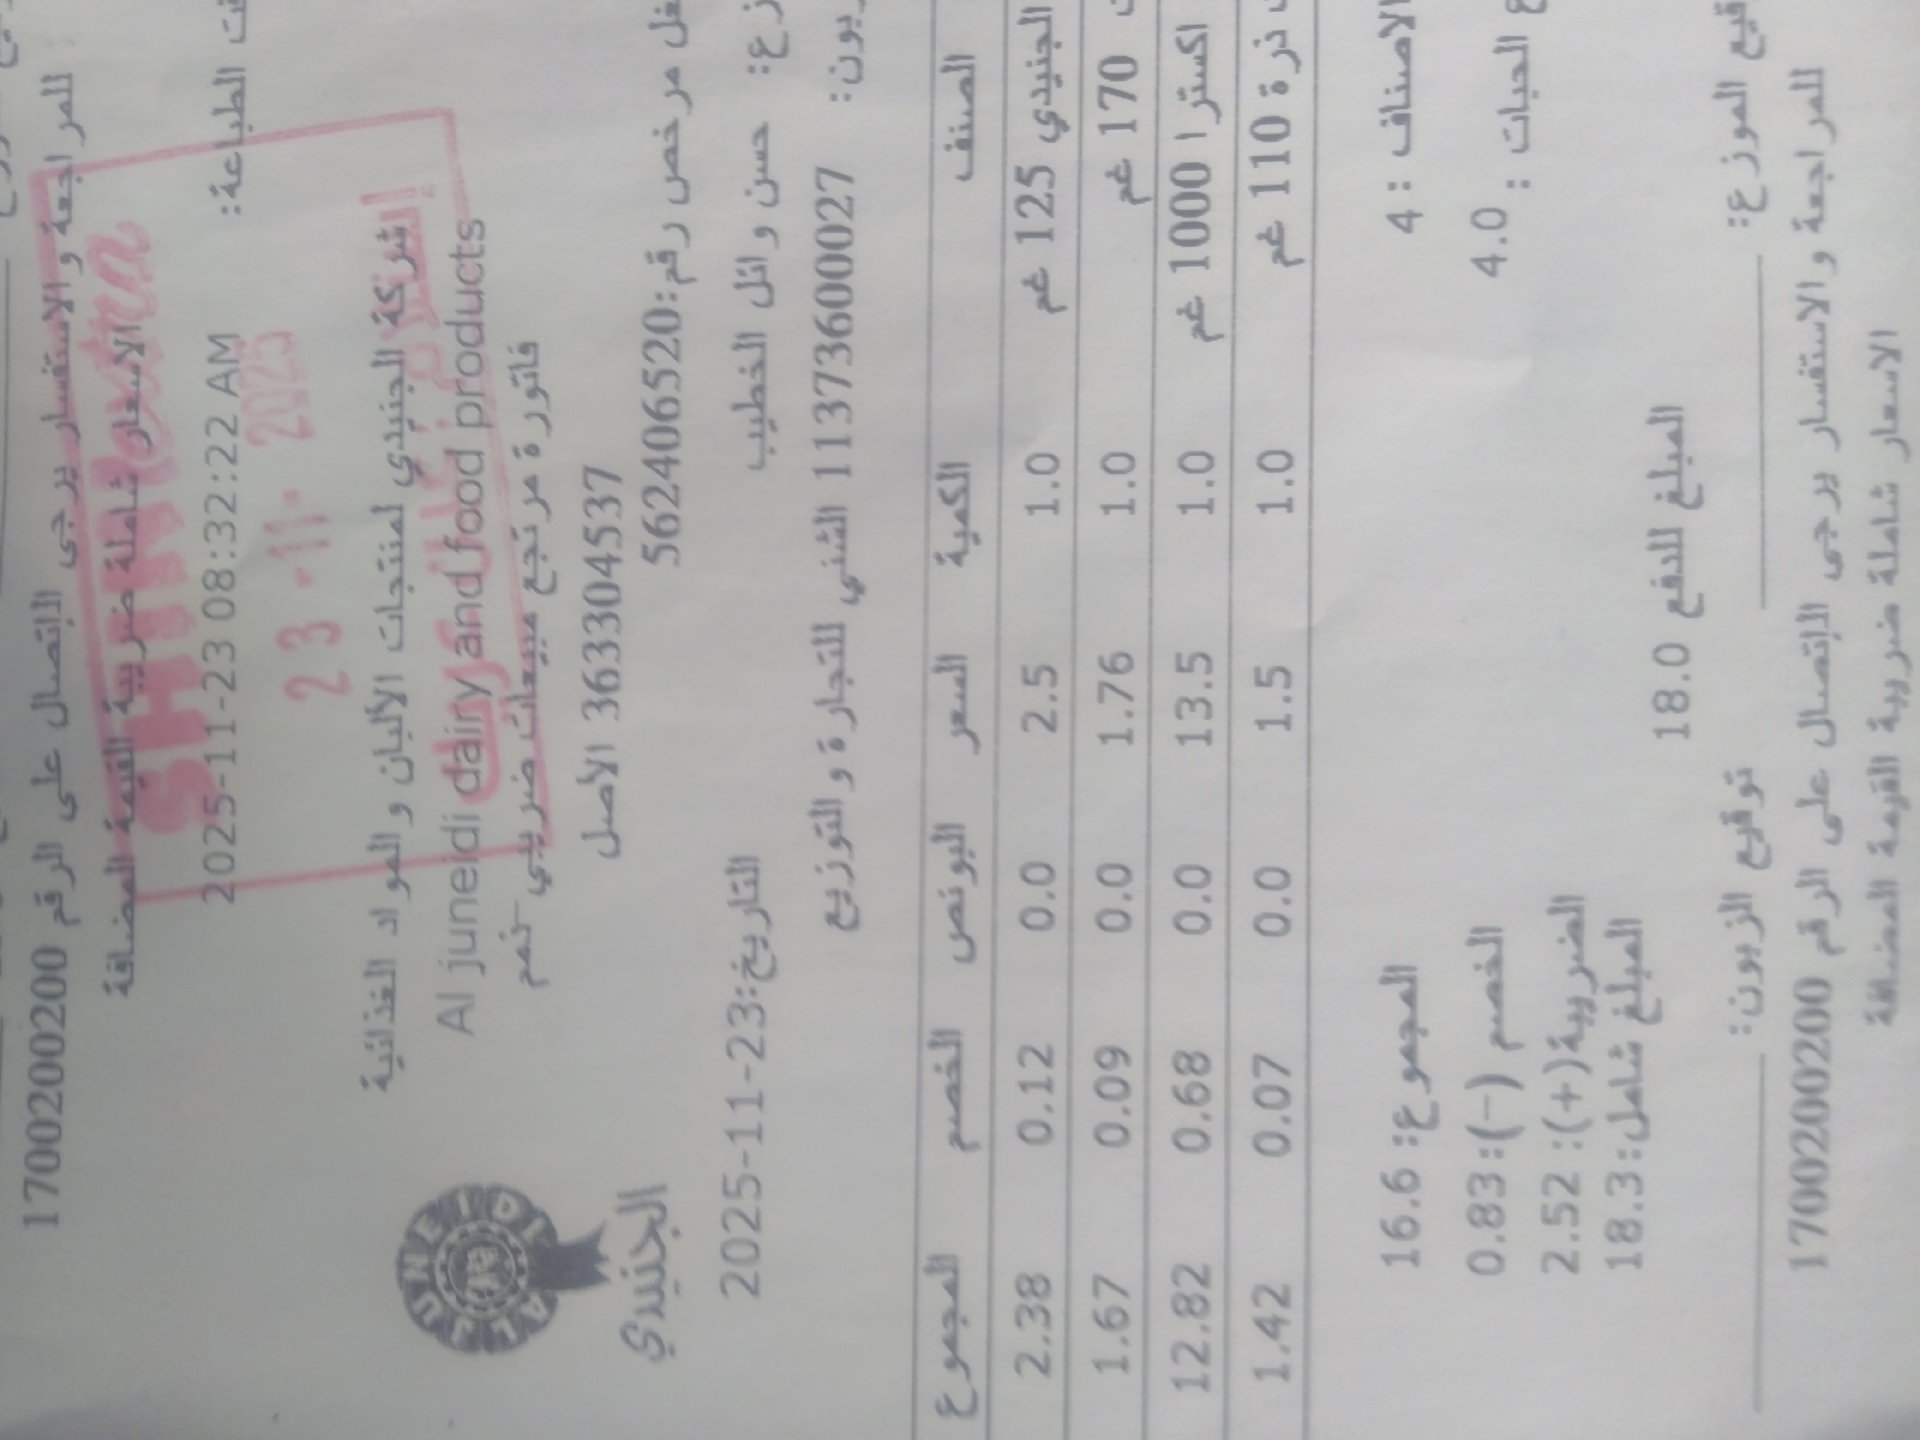 للمراجعة والاستفسار يرجى الاتصال على الرقم 1700200200
الاسعار شاملة ضريبة القيمة المضافة
SHINI extra
الطباعة: 2025-11-23 08:32:22 AM
23 -11- 2025
شركة الجنيدي لمنتجات الألبان و المواد الغذائية
Al juneidi dairy and food products
فاتورة مرتجع مبيعات ضريبي
3633304537 الأصل
مرخص رقم:562406520
AL JUNEIDI
الجنيدي
حسن وائل الخطيب
التاريخ:2025-11-23
1137360027 الشني للتجارة و التوزيع
الصنف الكمية السعر البونص الخصم المجموع
الجنيدي 125 غم 1.0 2.5 0.0 0.12 2.38
170 غم 1.0 1.76 0.0 0.09 1.67
اكسترا 1000 غم 1.0 13.5 0.0 0.68 12.82
ذرة 110 غم 1.0 1.5 0.0 0.07 1.42
الاصناف : 4
المجموع: 16.6
الحبات : 4.0
الخصم (-): 0.83
الضريبة(+): 2.52
المبلغ شامل: 18.3
المبلغ للدفع 18.0
الموزع:
توقيع الزبون:
للمراجعة والاستفسار يرجى الاتصال على الرقم 1700200200
الاسعار شاملة ضريبة القيمة المضافة